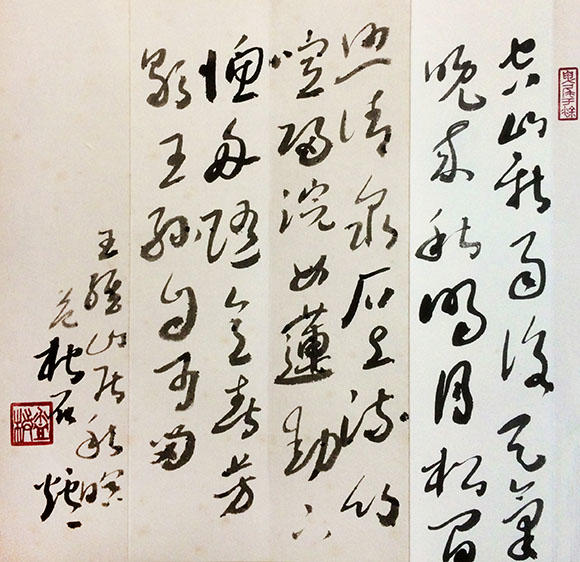 空山新雨後天氣
晚來秋明月松間
照清泉石上流竹
喧歸浣女蓮動下
漁舟隨意春芳
歇王孫自可留
王維山居秋暝